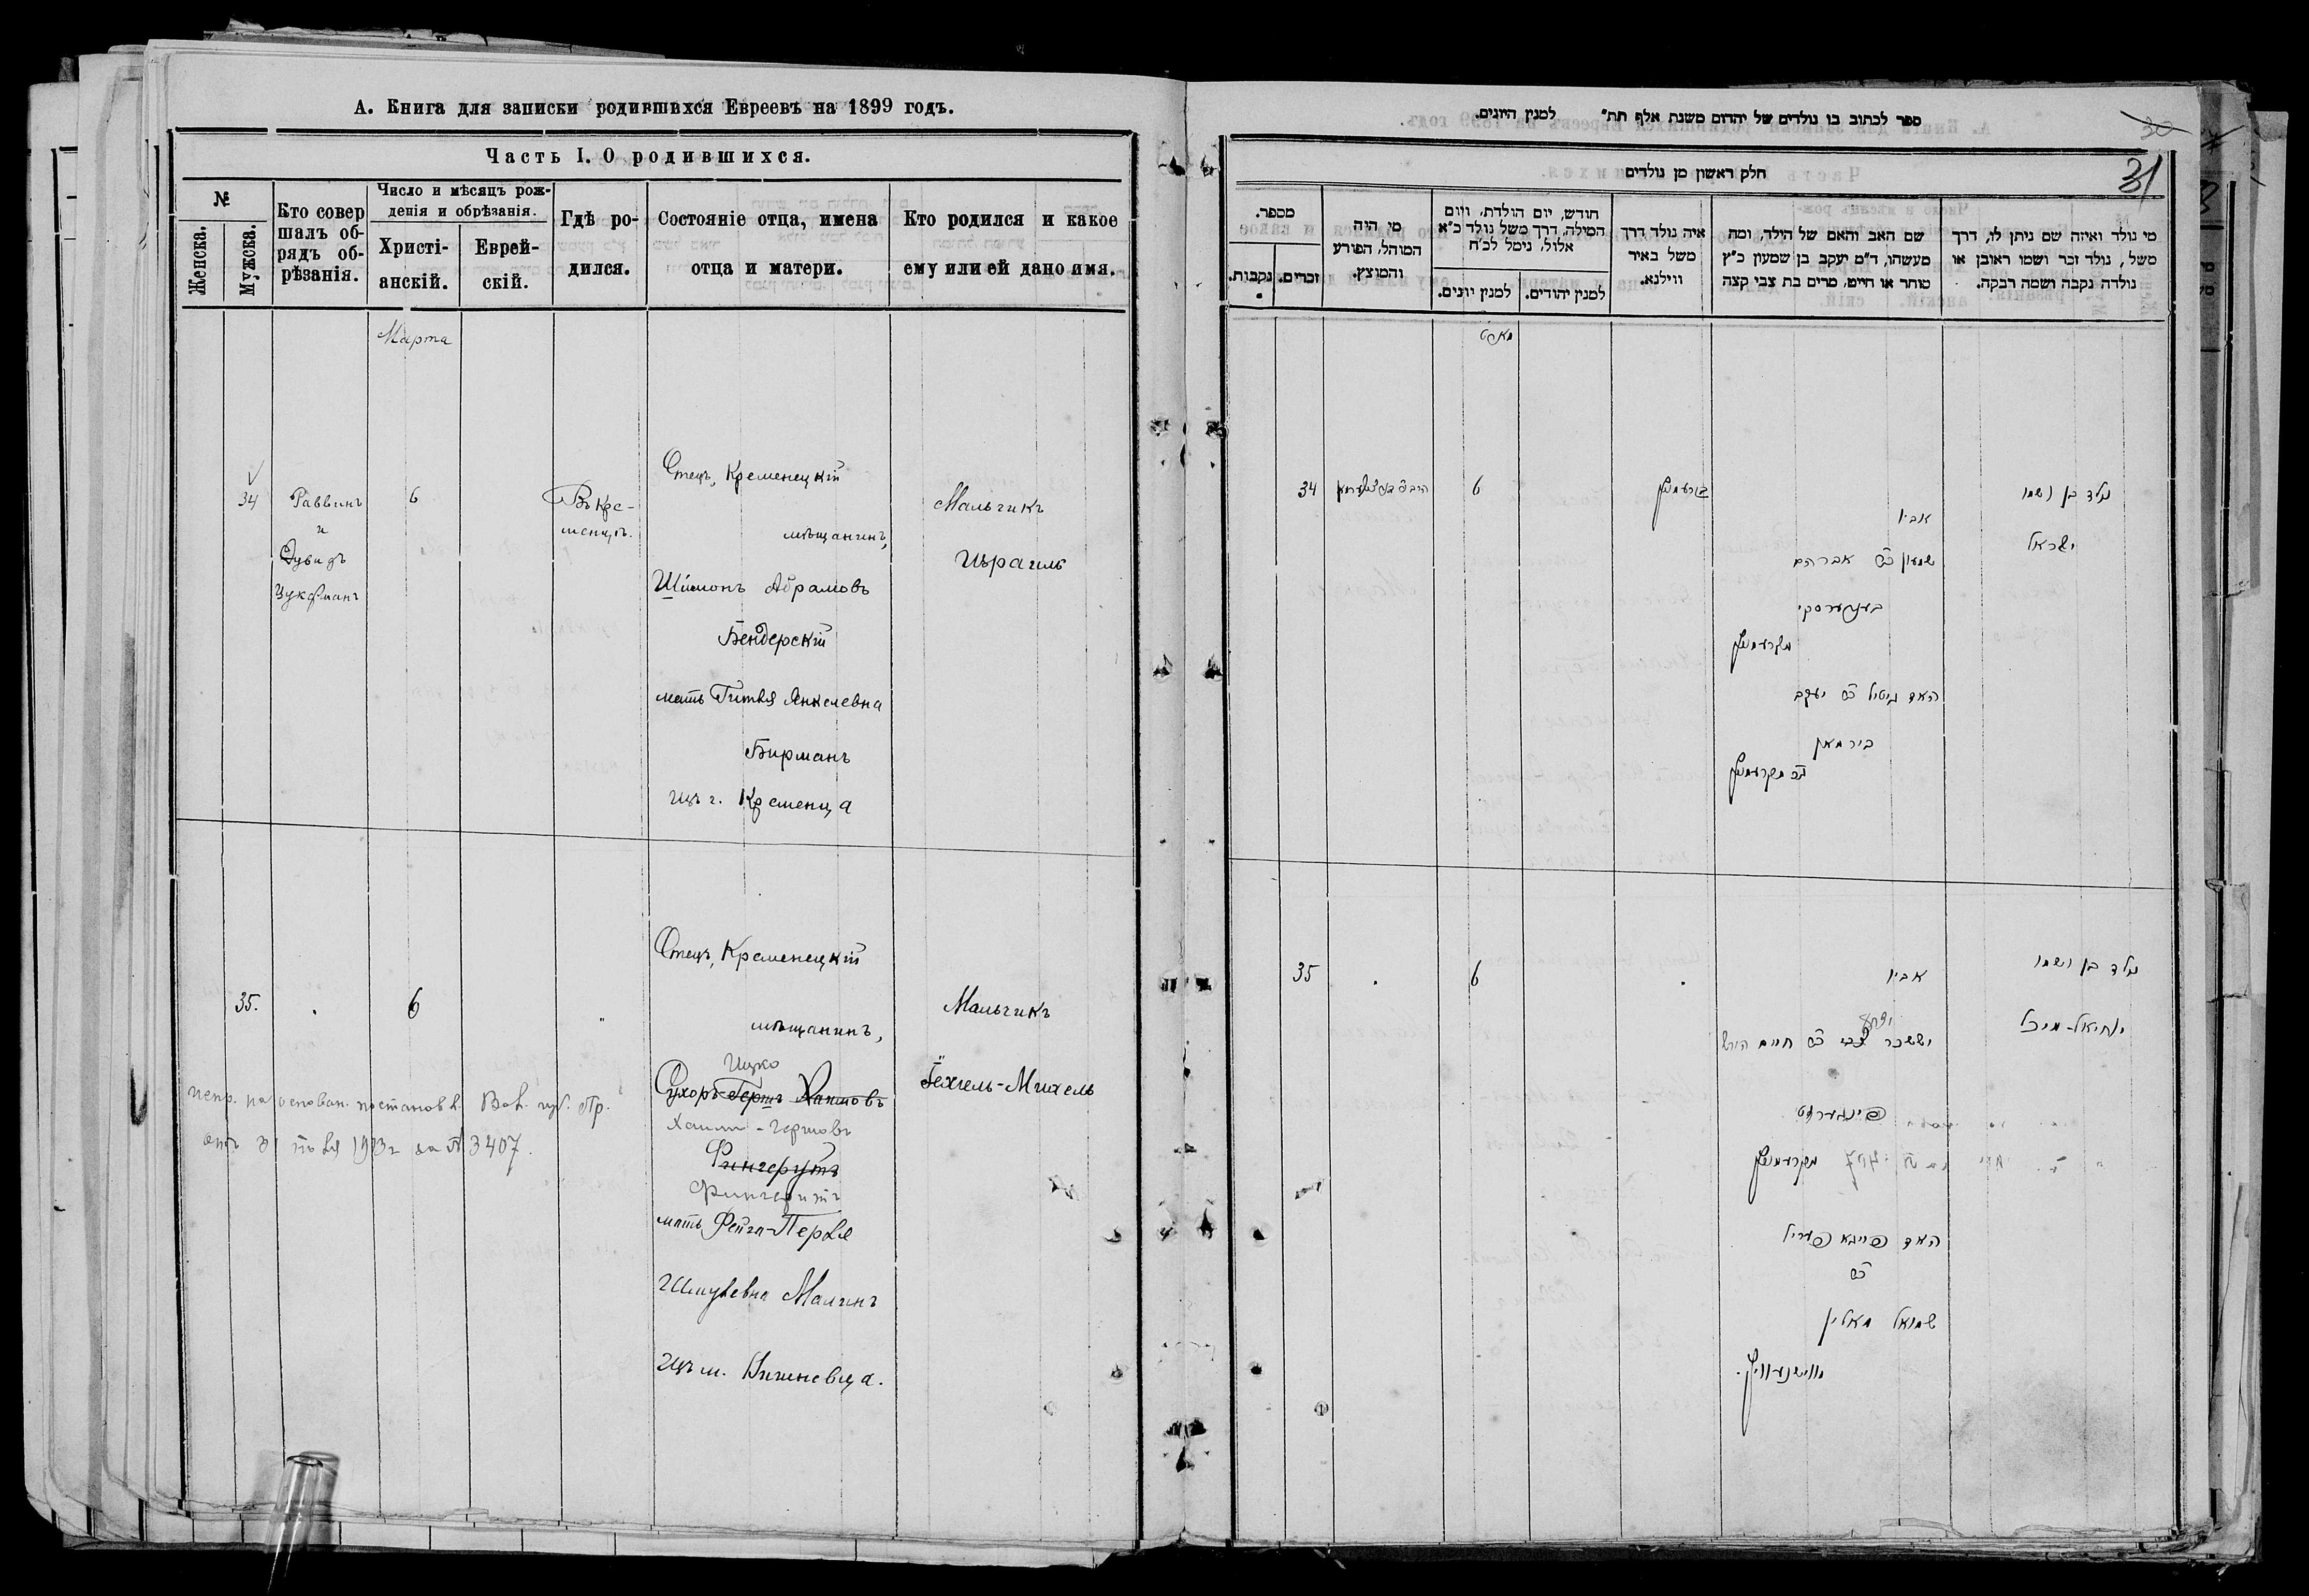 А. Книга для записки родившихся Евреевъ на 1899 годъ.
Часть I. О родившихся.
№
Женска.
Мужска.
Кто совер
шалъ об-
рядъ об-
рѣзанія.
Число и мѣсяцъ рож-
денія и обрѣзанія.
Христі-
анскій.
Еврей-
скій.
Гдѣ ро-
дился.
Состояніе отца, имена
отца и матери.
Кто родился и какое
ему или ей дано имя.
Марта
34
Раввинъ
и
Дувидъ
Цукерманъ
6
Въ Кре-
менцѣ.
Отецъ, Кременецкій
мѣщанинъ,
Шимонъ Абрамовъ
Бендерскій
мать Гитля Янкелевна
Бирманъ
изъ г. Кременца
Мальчикъ
Израиль
35.
6
"
Отецъ, Кременецкій
мѣщанинъ,
Ицко
Сухоръ-Гершъ Хаимовъ
Хаимъ-Гершовъ
Фингерутъ
Фингеритъ
мать Фейга-Перля
Шмулевна Малинъ
изъ м. Вишневца.
Мальчикъ
Іехіель-Михель
испр. на основан. постановл. Вол. губ. Пр.
отъ 31 1913 г за № 3407.
ספר לכתוב בו נולדים של יהדום משנת אלף תת״ למנין היונים.
30
31
חלק ראשון מן נולדים
מספר.
נקבות.
זכרים.
מי היה
המוהל, הפורע
והמוצץ.
חודש, יום הולדת, ויום
המילה, דרך משל נולד כ״א
אלול, נימל לכ״ח
למנין יונים.
למנין יהודים.
איה נולד דרך
משל באיר
ווילנא.
שם האב והאם של הילד, ומה
מעשהו, ד״מ יעקב בן שמעון כ״ץ
סוחר או חייט, מרים בת צבי קצה
מי נולד ואיזה שם ניתן לו, דרך
משל, נולד זכר ושמו ראובן או
נולדה נקבה ושמה רבקה.
מארט
34
6
אביו
שמעון ב״ר אברהם
בענדערסקי
מקרעמניץ
האם גיטיל ב״ר יעקב
בירמאן
מקרעמניץ
נולד בן ושמו
ישראל
35
6
אביו
יצחק
יששכר צבי ב״ר חיים הירש
פינגערוט
מקרעמניץ
האם פייגא פעריל
ב״ר
שמואל מאלין
ווישנעוויץ.
נולד בן ושמו
יחיאל-מיכל